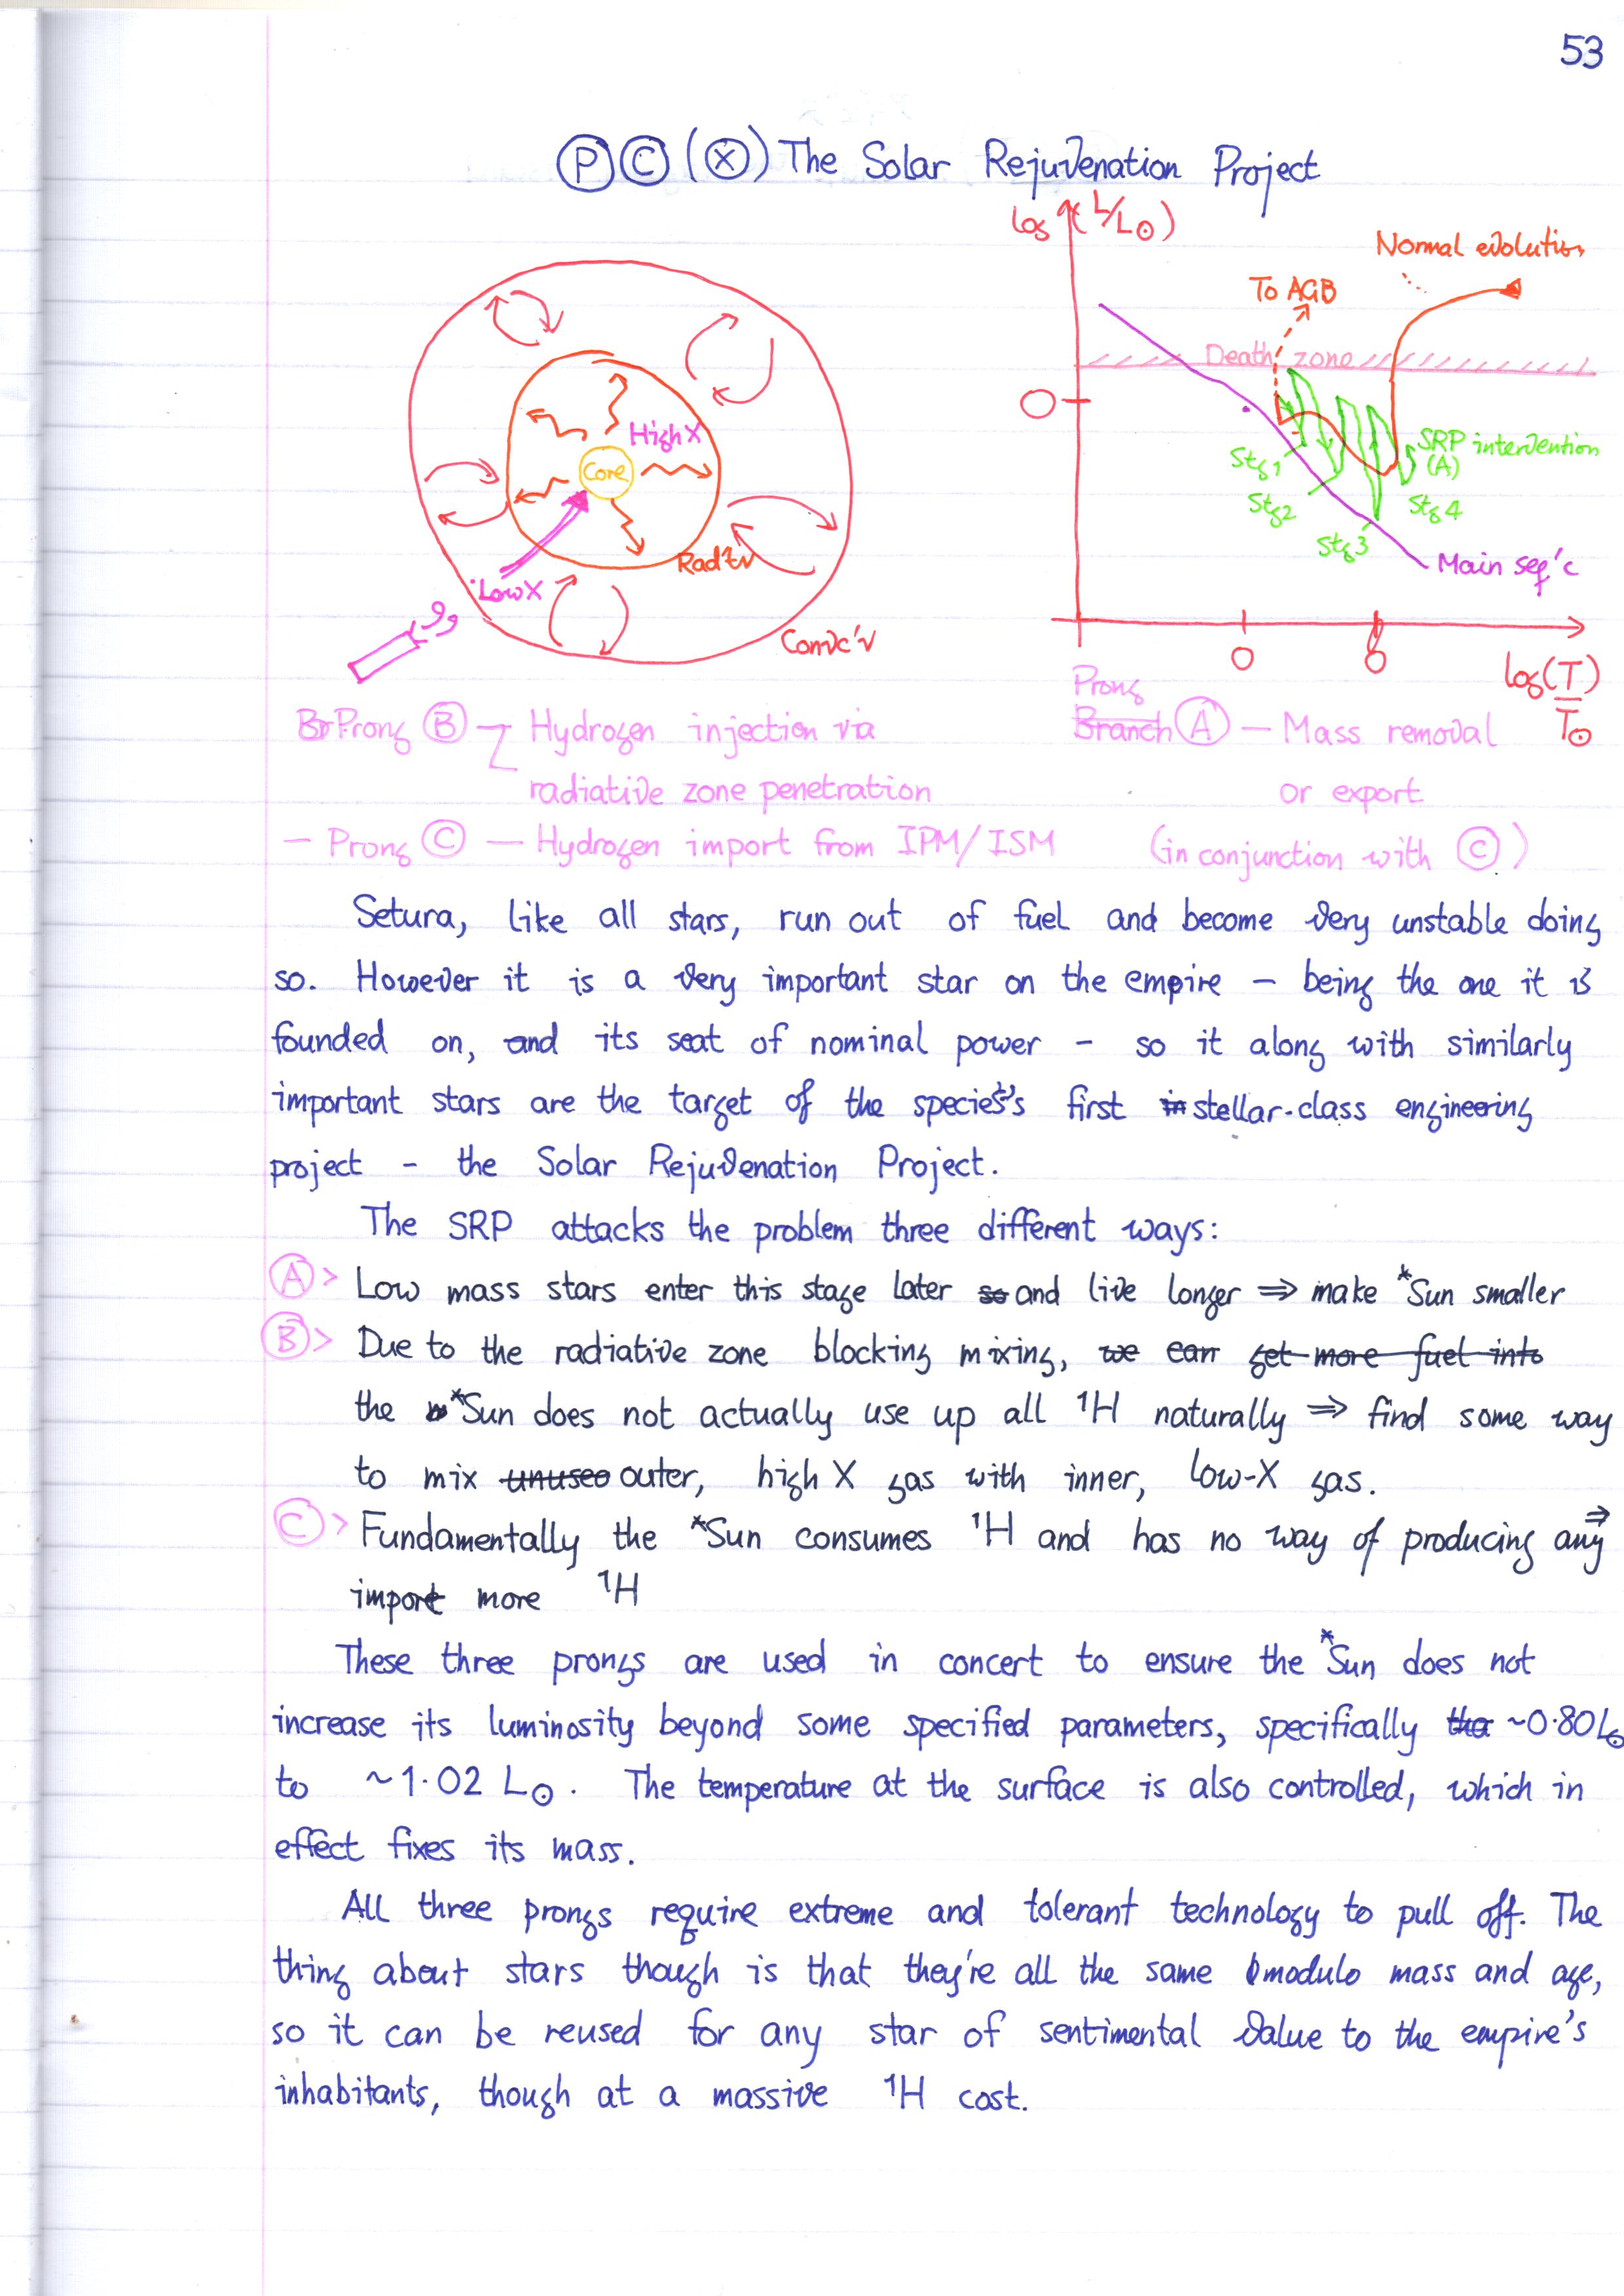 53
Ⓟ Ⓒ (Ⓧ) The Solar Rejuvenation Project
log (L/L☉)
Normal evolution
To AGB
Death zone
0
High X
Core
SRP intervention
(A)
Stg 1
Stg 2
Stg 4
Stg 3
Main seq'c
Radt'v
Low X
Convc'v
0
log(T/T☉)
Br Prong Ⓑ — Hydrogen injection via
radiative zone penetration
Prong
Branch Ⓐ — Mass removal
or export
— Prong Ⓒ — Hydrogen import from IPM/ISM
(in conjunction with Ⓒ)
Setura, like all stars, run out of fuel and become very unstable doing
so. However it is a very important star on the empire – being the one it is
founded on, and its seat of nominal power – so it along with similarly
important stars are the target of the species's first in stellar-class engineering
project – the Solar Rejuvenation Project.
The SRP attacks the problem three different ways:
Ⓐ> Low mass stars enter this stage later so and live longer ⇒ make *Sun smaller
Ⓑ> Due to the radiative zone blocking mixing, we can get more fuel into
the *Sun does not actually use up all ¹H naturally ⇒ find some way
to mix unused outer, high X gas with inner, low-X gas.
Ⓒ> Fundamentally the *Sun consumes ¹H and has no way of producing any ⇒
import more ¹H
These three prongs are used in concert to ensure the *Sun does not
increase its luminosity beyond some specified parameters, specifically tha ~0.80L☉
to ~1.02 L☉. The temperature at the surface is also controlled, which in
effect fixes its mass.
All three prongs require extreme and tolerant technology to pull off. The
thing about stars though is that they're all the same modulo mass and age,
so it can be reused for any star of sentimental value to the empire's
inhabitants, though at a massive ¹H cost.